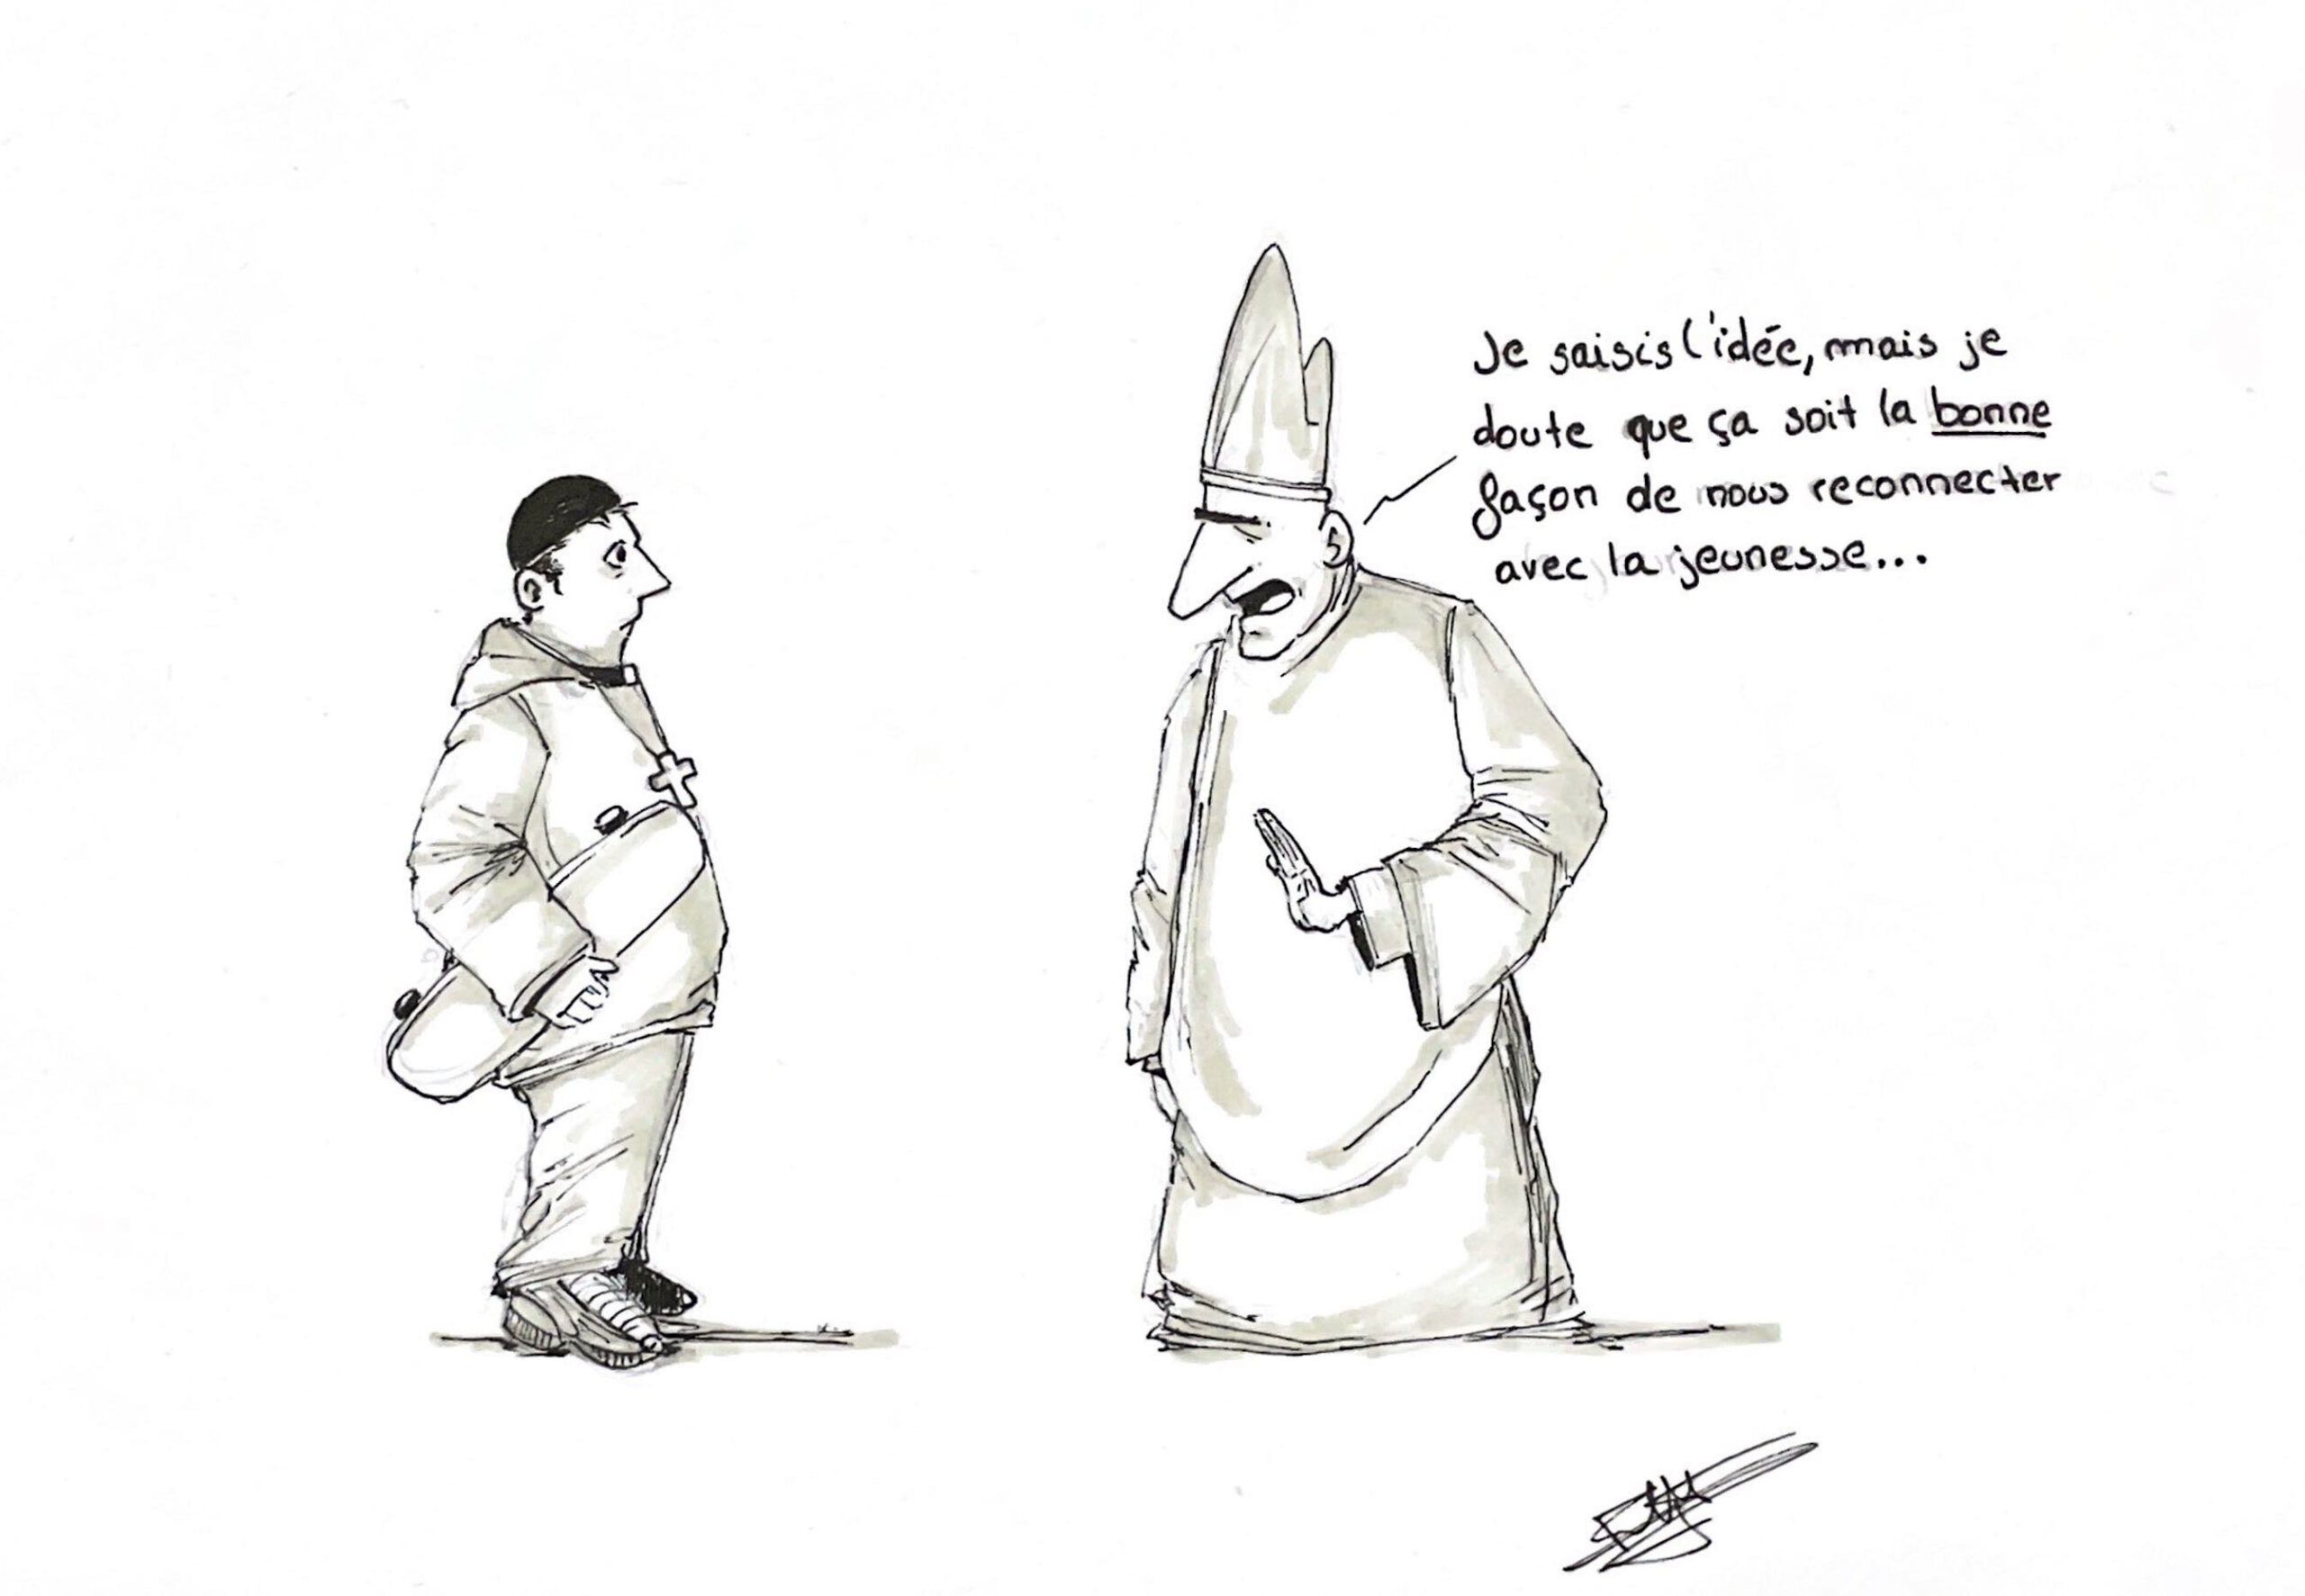 Je saisis l'idée, mais je
doute que ça soit la bonne
façon de nous reconnecter
avec la jeunesse...